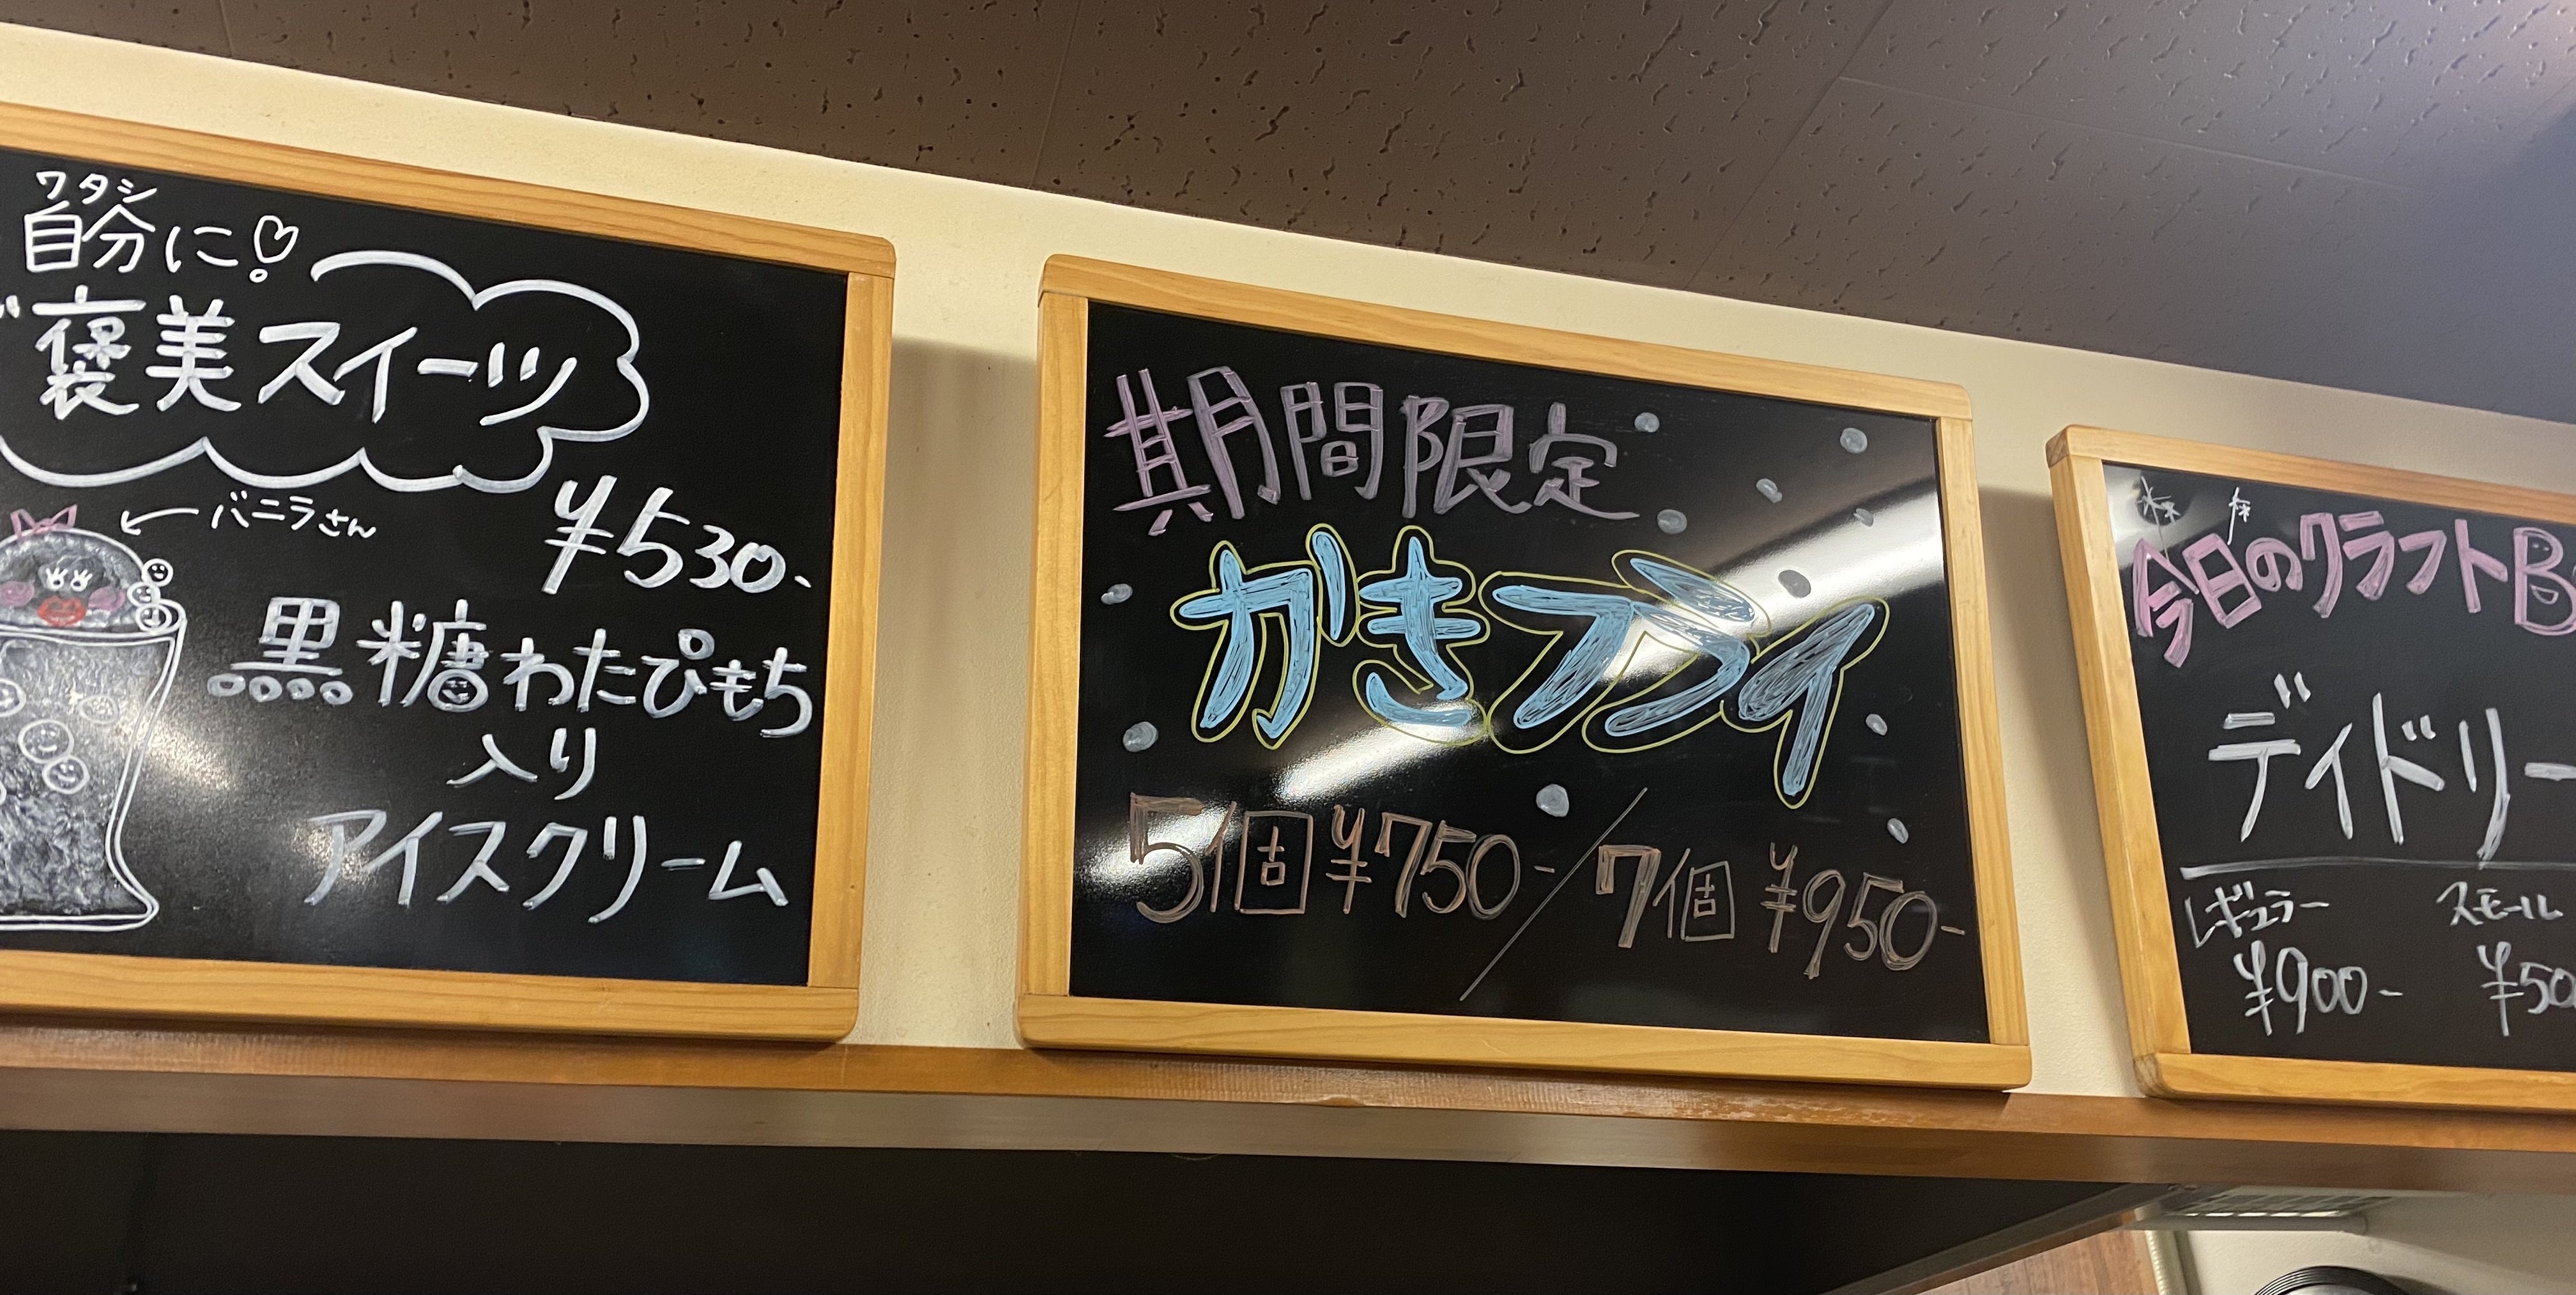 ワタシ
自分に!
ご褒美スイーツ
バニラさん
¥530-
黒糖わたぴもち
入り
アイスクリーム
期間限定
かきフライ
5個¥750-/7個¥950-
今日のクラフトB
ディドリー
レギュラー スモール
¥900- ¥50